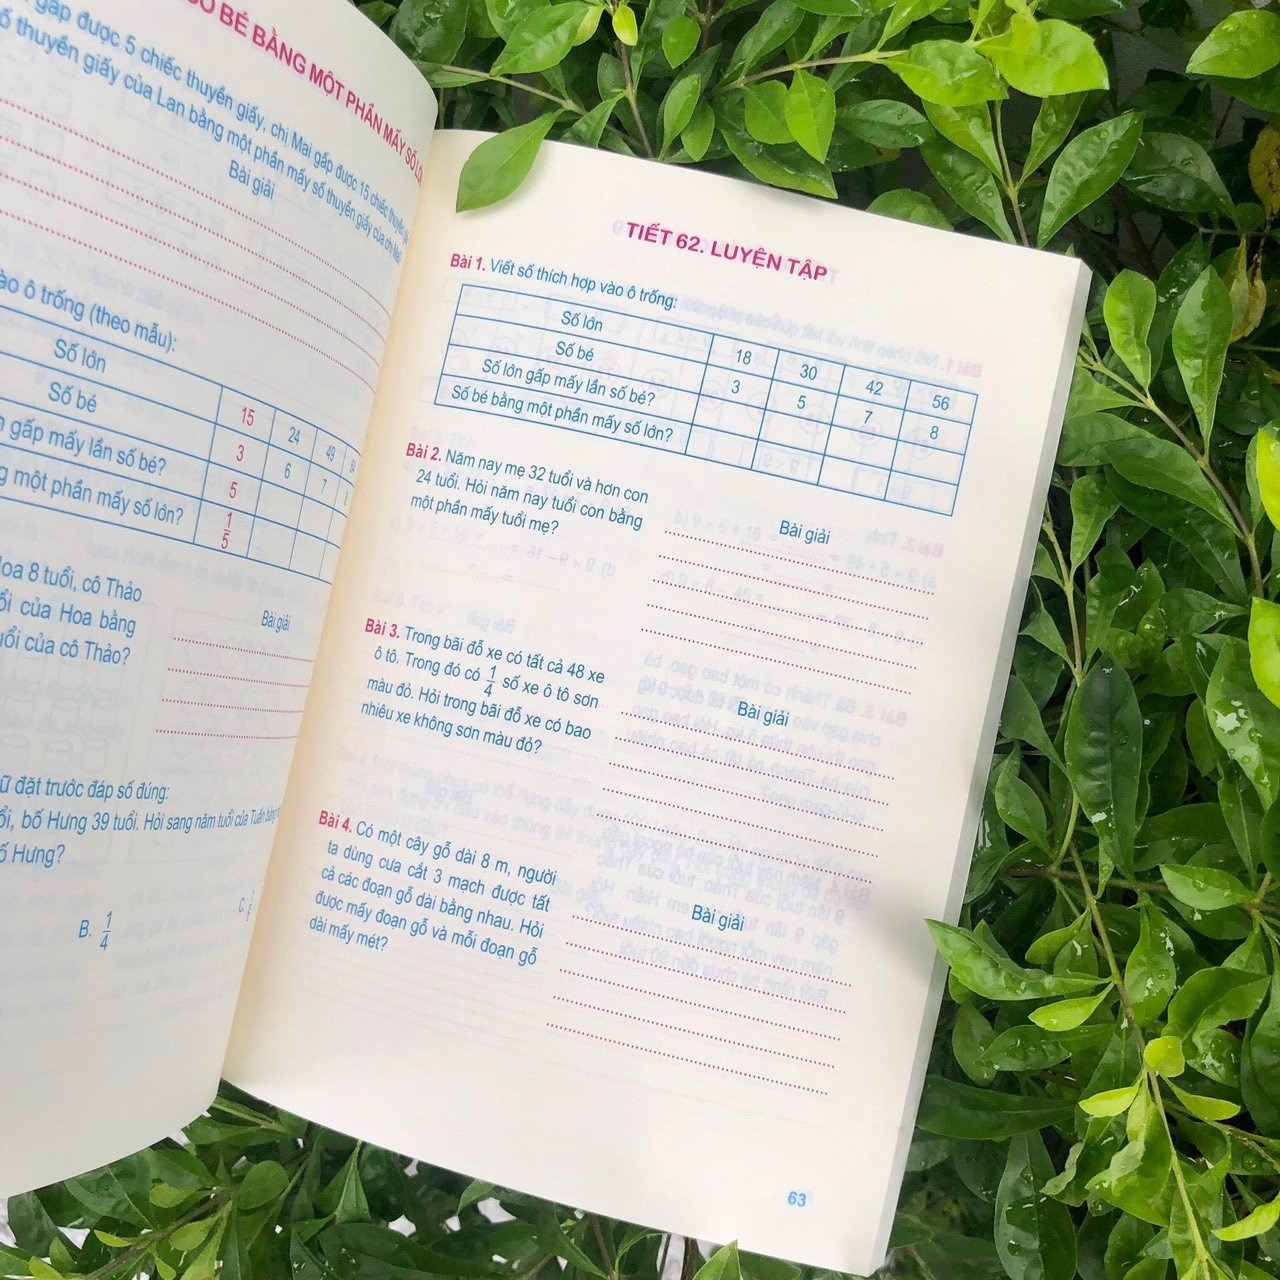 SỐ BÉ BẰNG MỘT PHẦN MẤY SỐ LỚN
gấp được 5 chiếc thuyền giấy, chị Mai gấp được 15 chiếc thuyền
số thuyền giấy của Lan bằng một phần mấy số thuyền giấy của chị Mai
Bài giải
ào ô trống (theo mẫu):
Số lớn 15 24 49
Số bé 3 6 7
gấp mấy lần số bé? 5
một phần mấy số lớn? 1/5
Hoa 8 tuổi, cô Thảo
ổi của Hoa bằng
uổi của cô Thảo?
Bài giải
ữ đặt trước đáp số đúng:
ổi, bố Hưng 39 tuổi. Hỏi sang năm tuổi của Tuấn bằng
ố Hưng?
B. 1/4
C.
TIẾT 62. LUYỆN TẬP
Bài 1. Viết số thích hợp vào ô trống:
Số lớn 18 30 42 56
Số bé 3 5 7 8
Số lớn gấp mấy lần số bé?
Số bé bằng một phần mấy số lớn?
Bài 2. Năm nay mẹ 32 tuổi và hơn con
24 tuổi. Hỏi năm nay tuổi con bằng
một phần mấy tuổi mẹ?
Bài giải
Bài 3. Trong bãi đỗ xe có tất cả 48 xe
ô tô. Trong đó có 1/4 số xe ô tô sơn
màu đỏ. Hỏi trong bãi đỗ xe có bao
nhiêu xe không sơn màu đỏ?
Bài giải
Bài 4. Có một cây gỗ dài 8 m, người
ta dùng cưa cắt 3 mạch được tất
cả các đoạn gỗ dài bằng nhau. Hỏi
được mấy đoạn gỗ và mỗi đoạn gỗ
dài mấy mét?
Bài giải
63